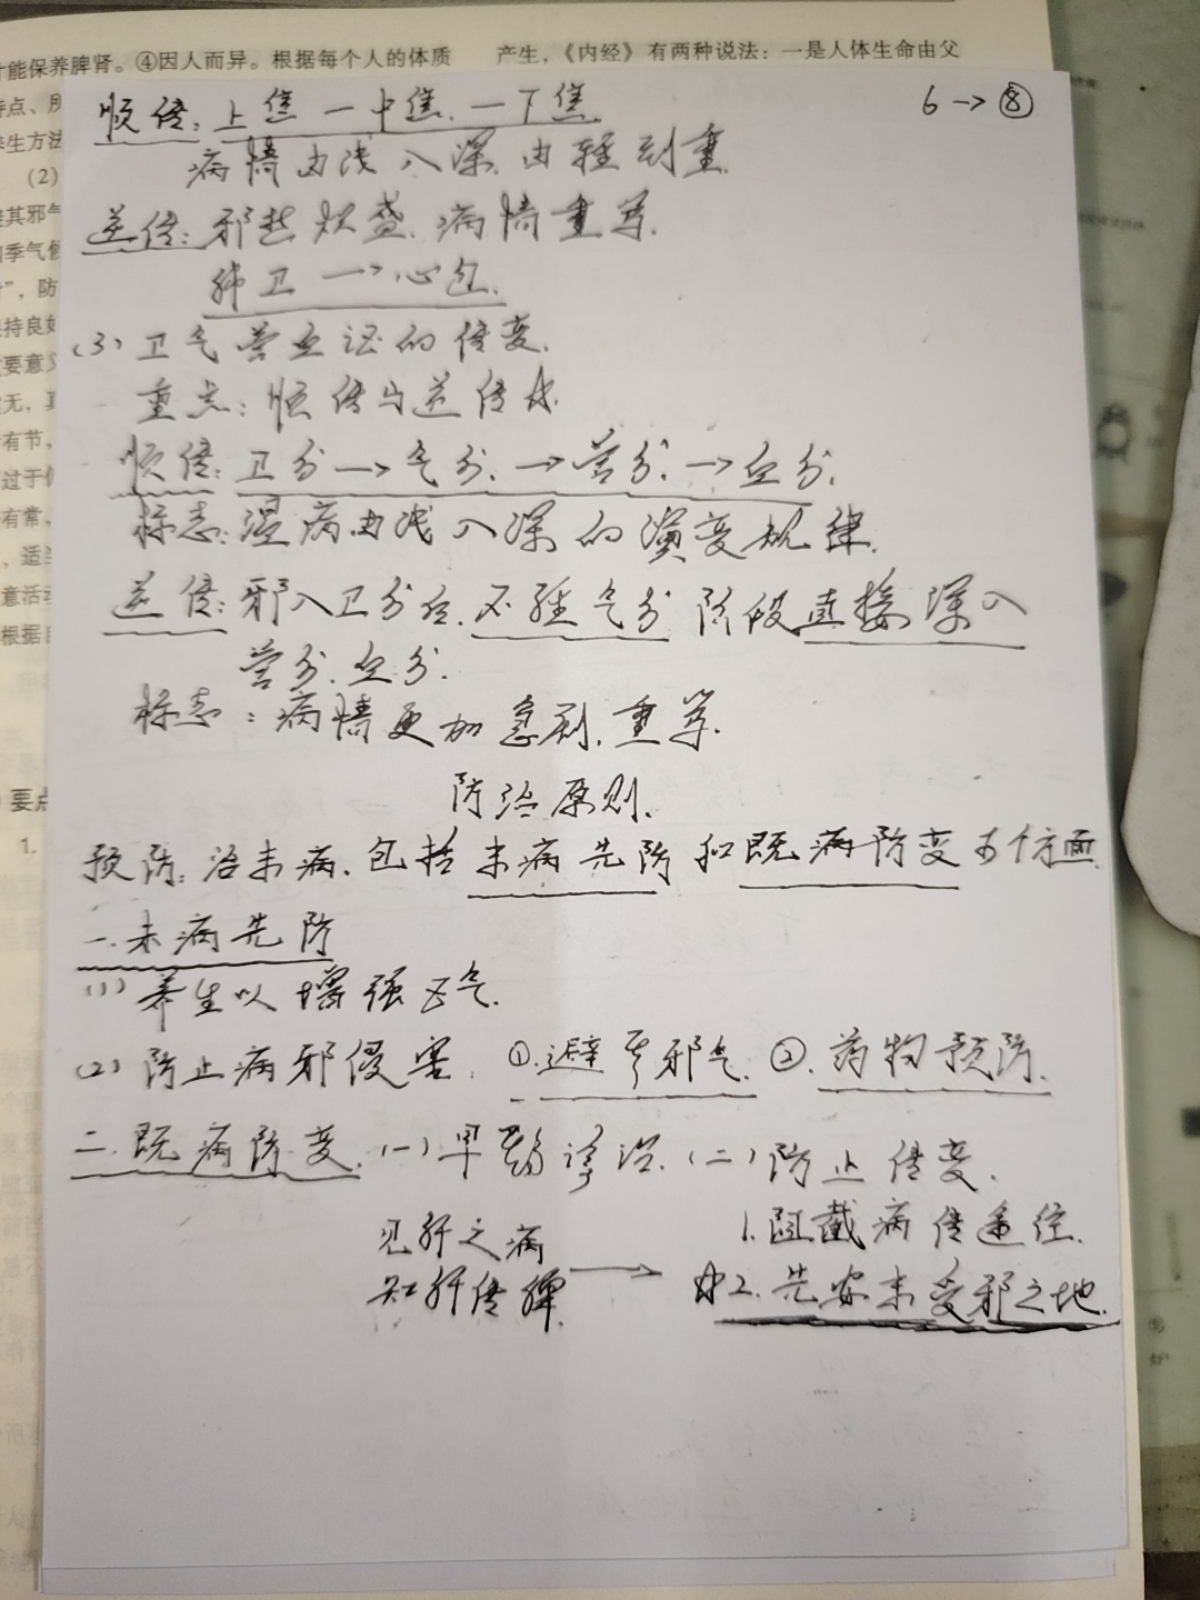 才能保养脾肾。④因人而异。根据每个人的体质
产生，《内经》有两种说法：一是人体生命由父
6→⑧
顺传：上焦—中焦—下焦
病情由浅入深.由轻到重.
逆传：邪热炽盛.病情重笃.
肺卫→心包.
(3) 卫气营血证的传变.
重点：顺传与逆传
顺传：卫分→气分.→营分.→血分.
标志：温病由浅入深的演变规律.
逆传：邪入卫分后.不经气分阶段直接深入
营分.血分.
标志：病情更加急剧.重笃.
防治原则.
预防：治未病.包括未病先防和既病防变方面.
一.未病先防
(1) 养生以增强正气.
(2) 防止病邪侵害. ①.避其邪气. ②.药物预防.
二.既病防变. (一) 早期诊治. (二) 防止传变.
1.阻截病传途径.
见肝之病
知肝传脾. → 2.先安未受邪之地.
要点
1.